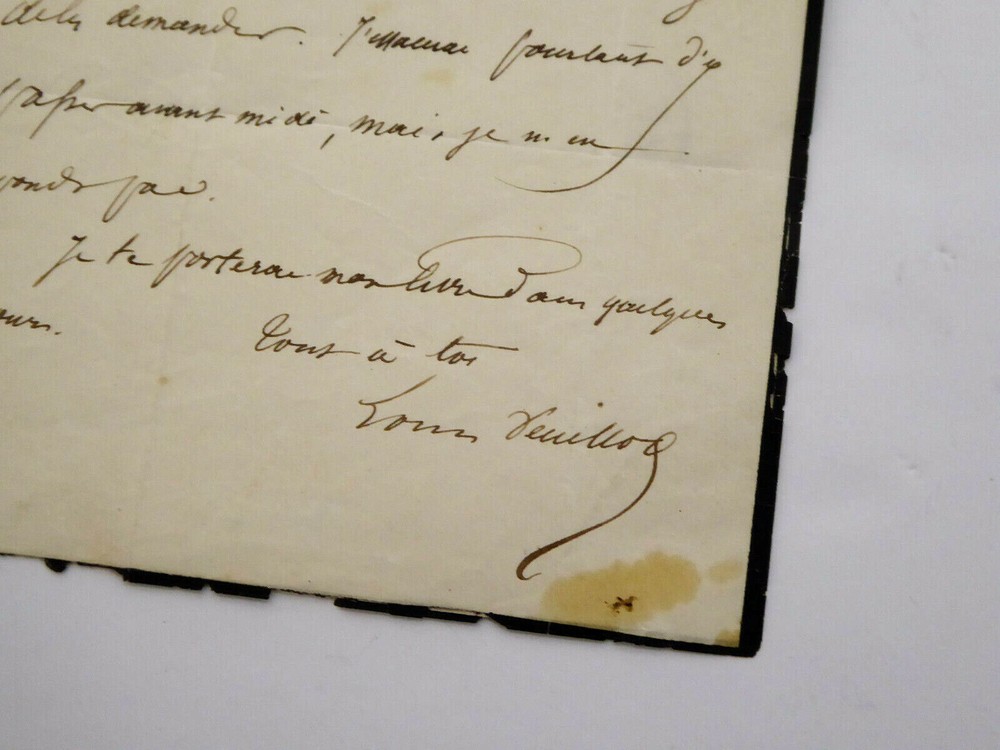 de les demander. J'essaierai pourtant d'y
passer avant midi, mais je n'en
réponds pas.
Je te porterai mon livre dans quelques
jours.
Tout à toi
Louis Veuillot